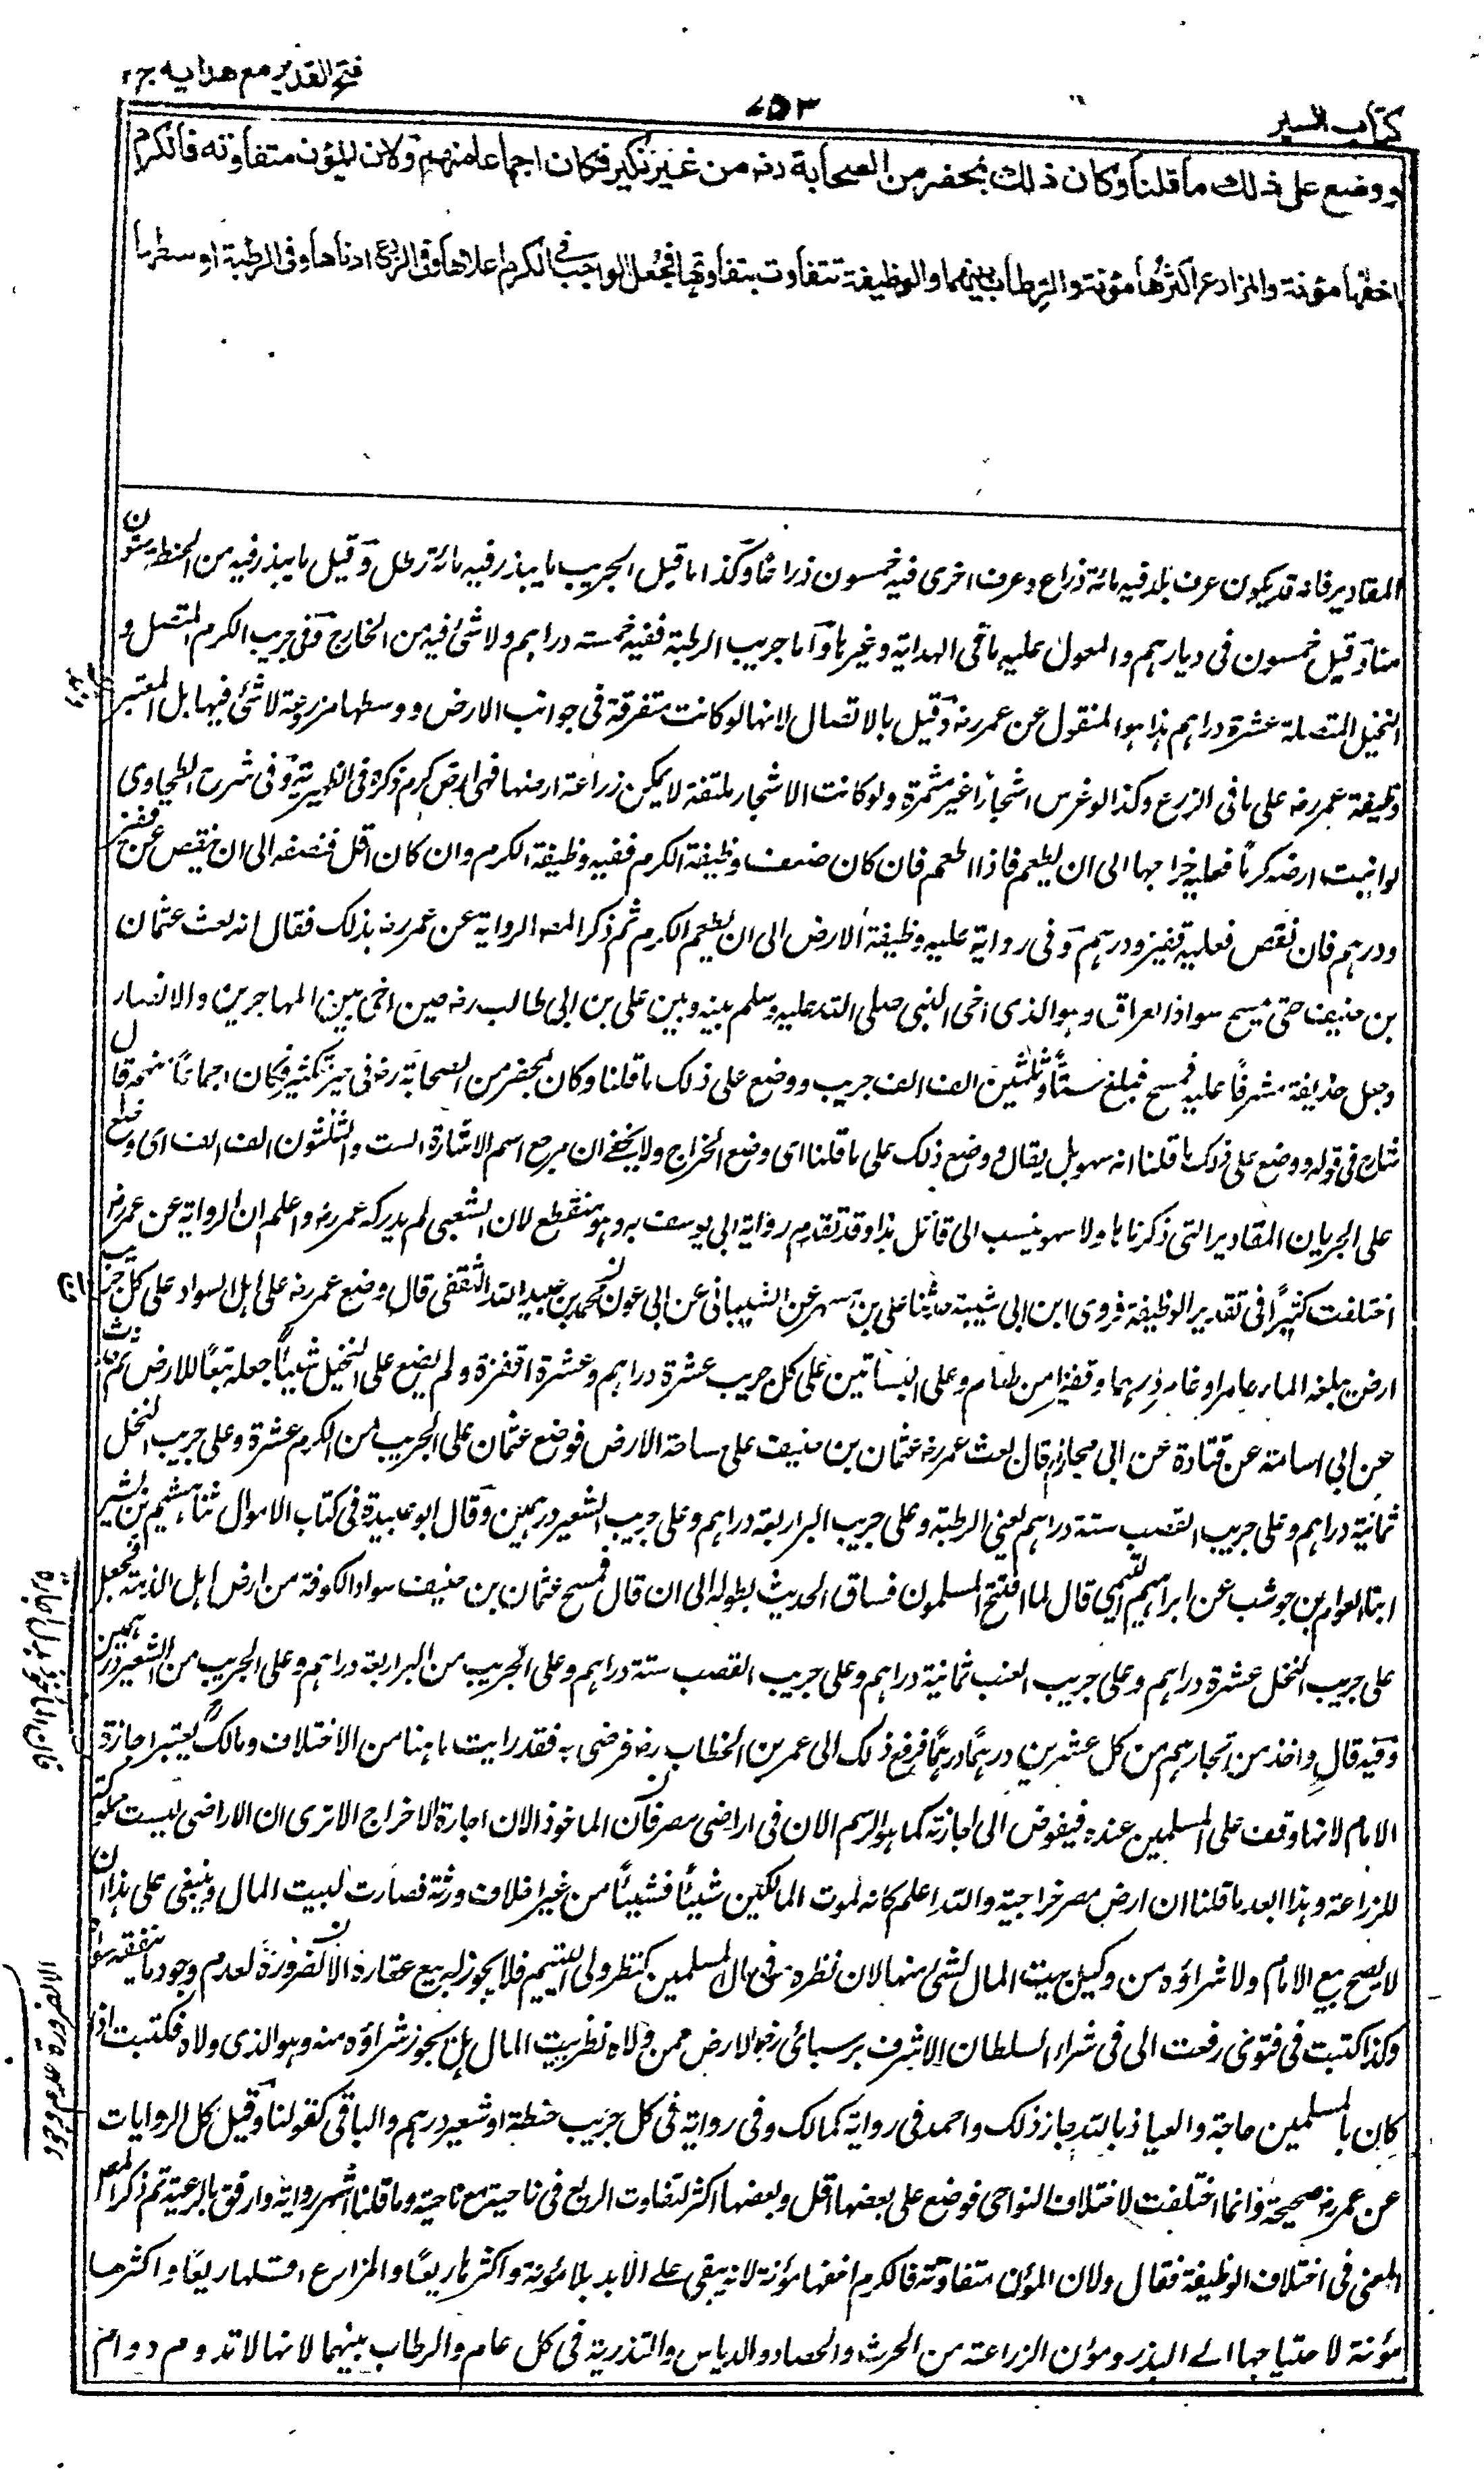 فتح القدير مع هدايه ج ٢
٧٥٣
كتاب السير
ووضع على ذلك ما قلنا وكان ذلك بمحضر من الصحابة رضه من غير نكير فكان اجماعا منهم ولان المؤن متفاوته فالكرم
اخفها مؤنة والمزارع اكثرها مؤنة والرطاب بينهما والوظيفة تتفاوت بتفاوتها فجعل الواجب في الكرم اعلاها وفى الزرع ادناها وفى الرطبة اوسطها
المقادير فانه قد يكون عرف بلد فيه مائة ذراع وعرف اخرى فيه خمسون ذراعا وكذا ما قيل الجريب ما يبذر فيه مائة رطل وقيل ما يبذر فيه من الحنطة ستون
منا وقيل خمسون فى ديارهم والمعول عليه ما فى الهداية وغيرها واما جريب الرطبة ففيه خمسة دراهم ولا شئ فيه من الخارج وفى جريب الكرم المتصل و
النخيل المتصلة عشرة دراهم هذا هو المنقول عن عمر رضه وقيل بالاتصال لانها لو كانت متفرقة فى جوانب الارض ووسطها مزرعة لا شئ فيها بل المعتبر
وظيفة عمر رضه على ما فى الزرع وكذا لو غرس اشجارا غير مثمرة ولو كانت الاشجار ملتفة لا يمكن زراعة ارضها فهى ارض كرم ذكره فى الظهيرية وفى شرح الطحاوى
لو انبت ارضه كرما فعليه خراجها الى ان يطعم فاذا اطعم فان كان ضعف وظيفة الكرم ففيه وظيفة الكرم وان كان اقل فنصفه الى ان ينقص عن قفيز
ودرهم فان نقص فعليه قفيز ودرهم وفى رواية عليه وظيفة الارض الى ان يطعم الكرم ثم ذكر المصه الرواية عن عمر رضه بذلك فقال انه بعث عثمان
بن حنيف حتى يمسح سواد العراق وهو الذى اخى النبى صلى الله عليه وسلم بينه وبين على بن ابى طالب رضه حين اخى بين المهاجرين والانصار
وجعل حذيفة مشرفا عليه فمسح فبلغ ستا وثلثين الف الف جريب ووضع على ذلك ما قلنا وكان بمحضر من الصحابة رضه فى غير نكير فكان اجماعا منهم قال
شارح فى قوله ووضع على ذلك ما قلنا انه سهو بل يقال ووضع ذلك على ما قلنا اى وضع الخراج ولا يخفى ان مرجع اسم الاشارة الست والثلثون الف الف اى وضع
على الجربان المقادير التى ذكرناها ولا سهو ينسب الى قائل هذا وقد تقدم رواية ابى يوسف به وهو منقطع لان الشعبى لم يدركه عمر رضه واعلم ان الرواية عن عمر رضه
اختلفت كثيرا فى تقدير الوظيفة فروى ابن ابى شيبة حدثنا على بن مسهر عن الشيبانى عن ابى عون محمد بن عبيد الله الثقفى قال وضع عمر رضه على اهل السواد على كل جريب
ارض يبلغه الماء عامر او غامر درهما وقفيزا من طعام وعلى البساتين على كل جريب عشرة دراهم وعشرة اقفزة ولم يضع على النخيل شيئا جعله تبعا للارض ثم حدث
عن ابى اسامة عن قتادة عن ابى مجلز قال بعث عمر رضه عثمان بن حنيف على مساحة الارض فوضع عثمان على الجريب من الكرم عشرة وعلى جريب النخل
ثمانية دراهم وعلى جريب القصب ستة دراهم يعنى الرطبة وعلى جريب البر اربعة دراهم وعلى جريب الشعير درهمين وقال ابو عبيدة فى كتاب الاموال ثنا هشيم بن بشير
ابنا العوام بن حوشب عن ابراهيم التيمى قال لما افتتح المسلمون فساق الحديث بطوله الى ان قال فمسح عثمان بن حنيف سواد الكوفة من ارض اهل الذمة فجعل
على جريب النخل عشرة دراهم وعلى جريب العنب ثمانية دراهم وعلى جريب القصب ستة دراهم وعلى الجريب من البر اربعة دراهم وعلى الجريب من الشعير درهمين
وفيه قال واخذ من تجارهم من كل عشرين درهما درهما فرفع ذلك الى عمر بن الخطاب رضه فرضى به فقد رايت ما هنا من الاختلاف ومالك يعتبر اجازة
الامام لانها وقف على المسلمين عنده فيفوض الى اجازته كما هو الرسم الان فى اراضى مصر فان الماخوذ الان اجارة لا خراج الا ترى ان الاراضى ليست مملوكة
للزراعة وهذا بعد ما قلنا ان ارض مصر خراجية والله اعلم كانه لموت المالكين شيئا فشيئا من غير اخلاف ورثة فصارت لبيت المال وينبغى على هذا ان
لا يصح بيع الامام ولا شراؤه من وكيل بيت المال لشئ منها لان نظره فى مال المسلمين كنظر ولى اليتيم فلا يجوز له بيع عقاره الا لضرورة لعدم وجود ما ينفقه سواه
وكذا كتبت فى فتوى رفعت الى فى شراء السلطان الاشرف برسبائى رحه الارض ممن ولاه نظر بيت المال هل يجوز شراؤه منه وهو الذى ولاه فكتبت اذا
كان بالمسلمين حاجة والعياذ بالله جاز ذلك واحمد فى رواية كمالك وفى رواية فى كل جريب حنطة او شعير درهم والباقى كقولنا وقيل كل الروايات
عن عمر رضه صحيحة وانما اختلفت لاختلاف النواحى فوضع على بعضها اقل وبعضها اكثر لتفاوت الريع فى ناحية مع ناحية وما قلنا اشهر رواية وارفق بالرعية ثم ذكر المصه
المعنى فى اختلاف الوظيفة فقال ولان المؤن متفاوتة فالكرم اخفها مؤنة لانه يبقى على الابد بلا مؤنة واكثرها ريعا والمزارع اقلها ريعا واكثرها
مؤنة لاحتياجها الى البذر ومؤن الزراعة من الحرث والحصاد والدياس والتذرية فى كل عام والرطاب بينهما لانها لا تدوم دوام